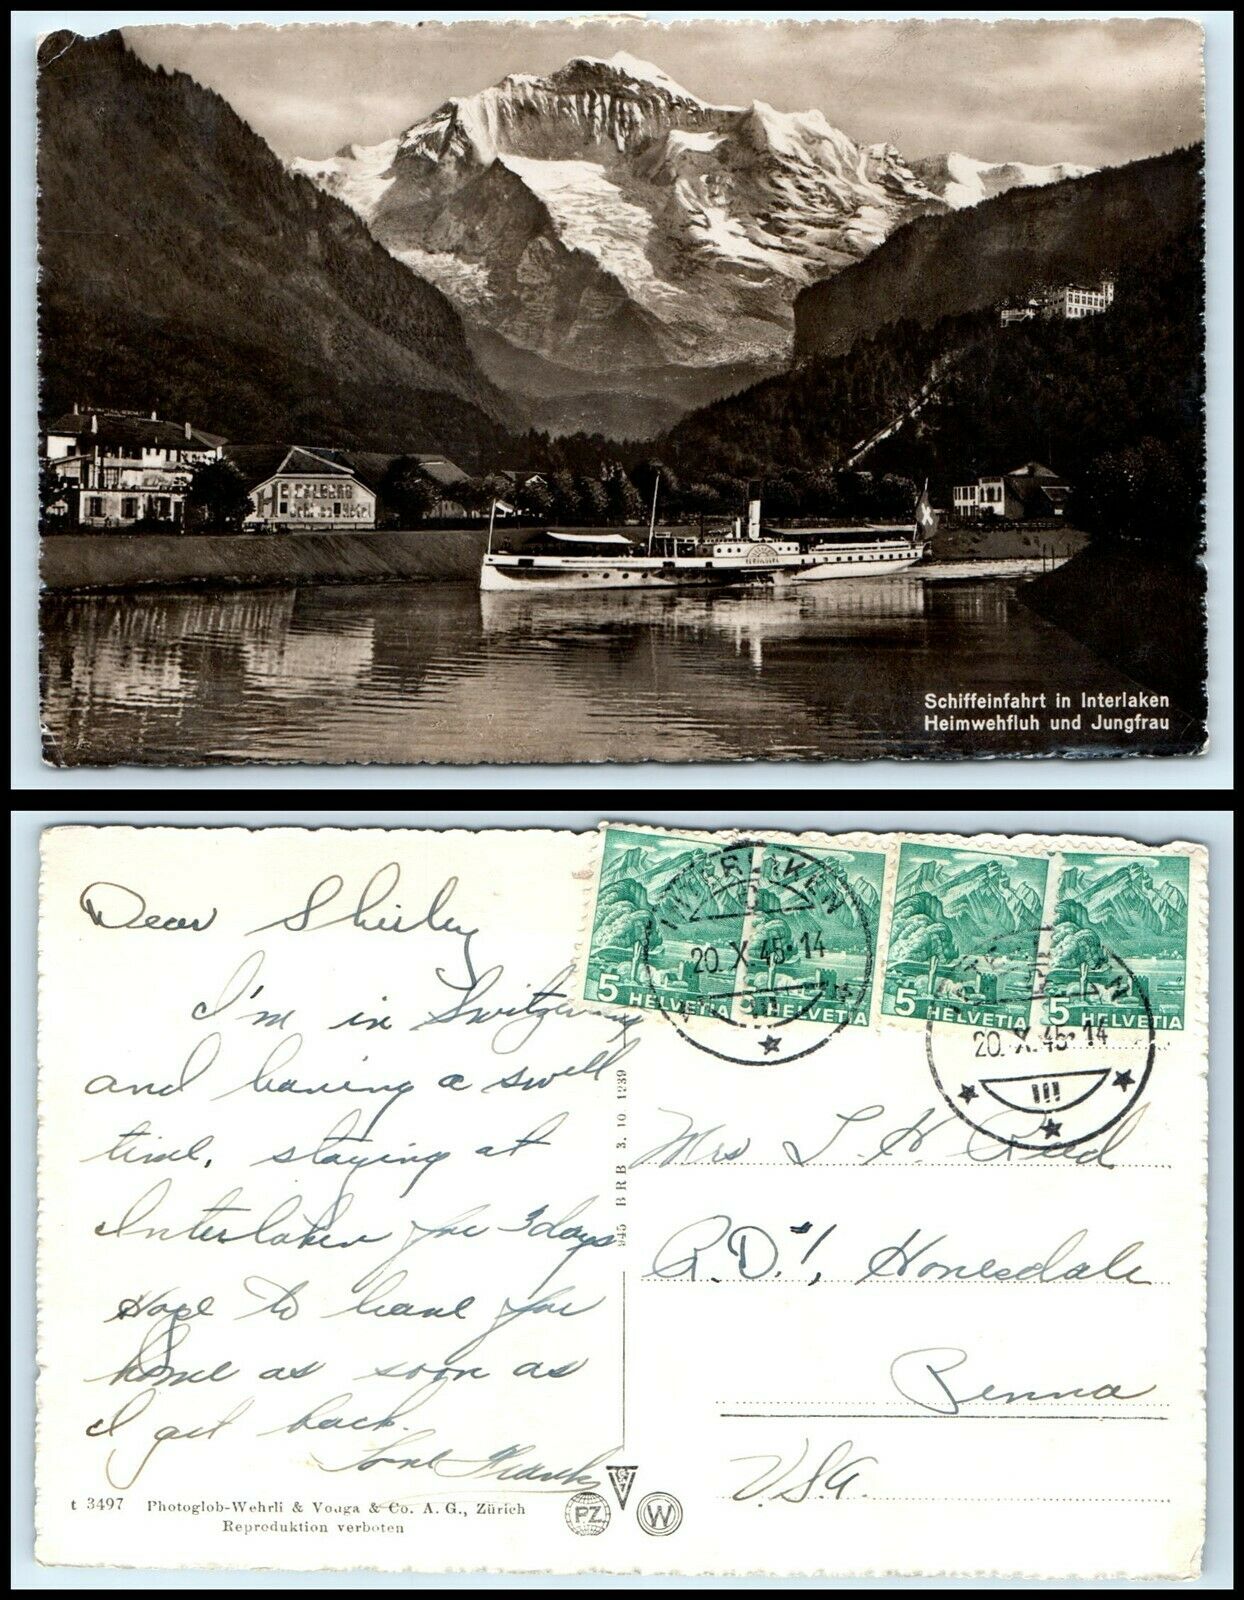 Schiffeinfahrt in Interlaken
Heimwehfluh und Jungfrau
Dear Shirley
I'm in Switzerland
and having a swell
time, staying at
Interlaken for 3 days
Hope to leave for
home as soon as
I get back.
Love Frank
t 3497 Photoglob-Wehrli & Vouga & Co. A. G., Zürich
Reproduktion verboten
945 BRB 3. 10 1239
PZ
W
5 HELVETIA
5 HELVETIA
5 HELVETIA
5 HELVETIA
INTERLAKEN
20. X. 45 · 14
III
INTERLAKEN
20. X. 45 · 14
III
Mrs L. H. Reed
R.D.#1, Honesdale
Penna
U.S.A.